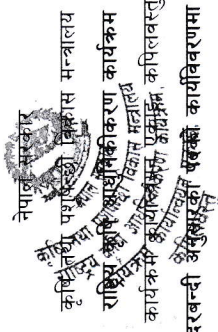 नेपाल सरकार
कृषि तथा पशुपन्छी विकास मन्त्रालय
राष्ट्रिय कृषि आधुनिकीकरण कार्यक्रम
कार्यक्रम कार्यान्वयन एकाई, कपिलवस्तु
दरबन्दी अनुसारको पदको कार्यविवरणमा